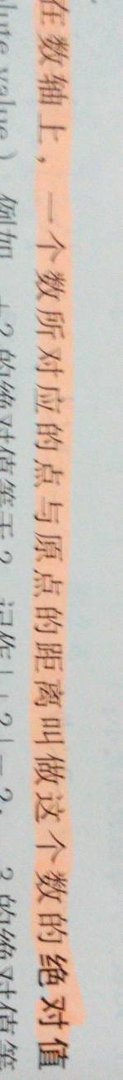 在数轴上，一个数所对应的点与原点的距离叫做这个数的绝对值
lute value）. 例如，+2的绝对值等于2，记作|+2|=2，-3的绝对值等